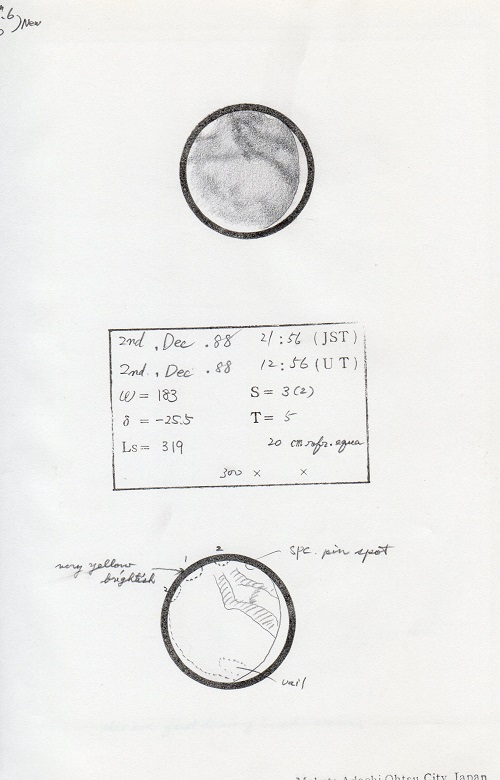 New
2nd, Dec .88 21:56 (JST)
2nd., Dec. .88 12:56 (UT)
ω = 183 S = 3(2)
δ = -25.5 T = 5
Ls = 319 20 cm refr. equa
300 × ×
2 SPC. pin spot
very yellow 1
brightish
2
vail
Adachi Ohtsu City, Japan